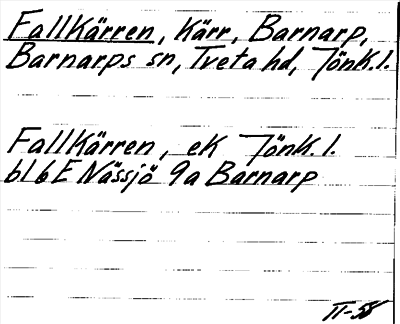 Fallkärren, Kärr, Barnarp,
Barnarps sn, Tveta hd, Jönk.l.
Fallkärren, ek Jönk.l.
bl 6E Nässjö 9a Barnarp
II-58